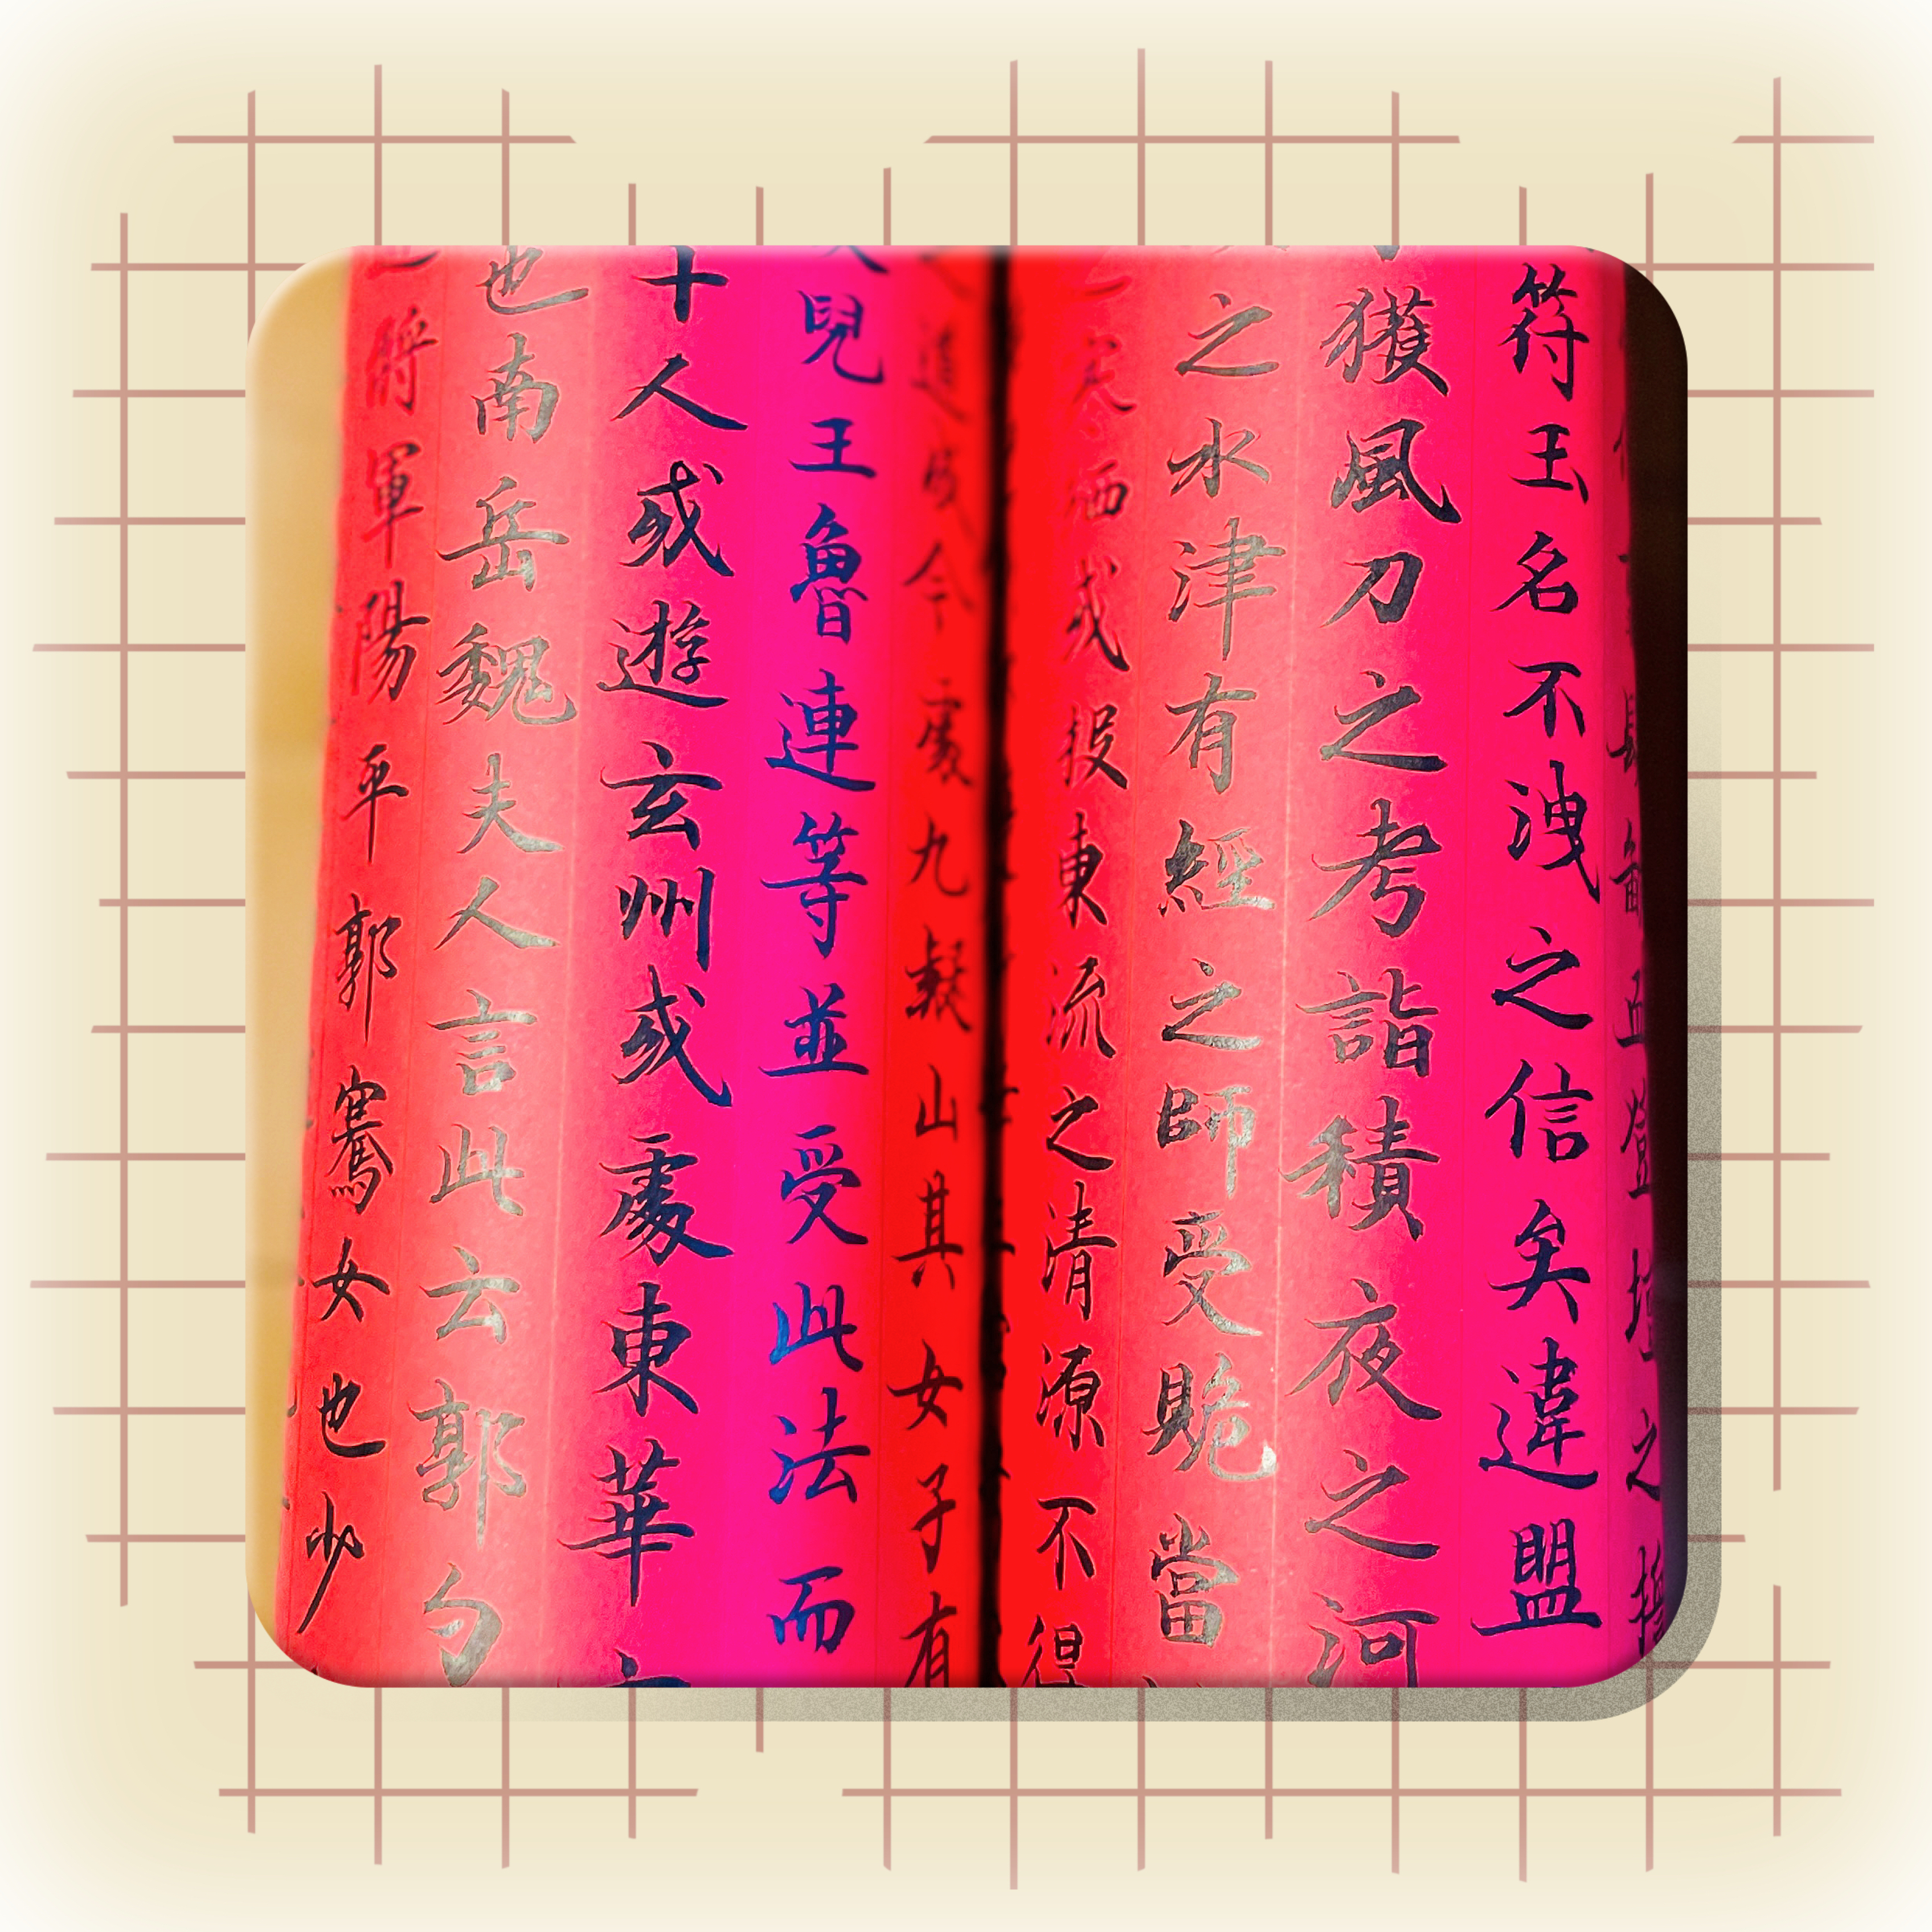 登壇之
符玉名不洩之信矣違盟
獲風刀之考詣積夜之河
之水津有經之師受當
栖或投東流之清源不得
今處九嶷山其女子有
兒王魯連等並受此法而
十人或遊玄州或處東華
也南岳魏夫人言此云郭勺
將軍陽平郭騫女也少